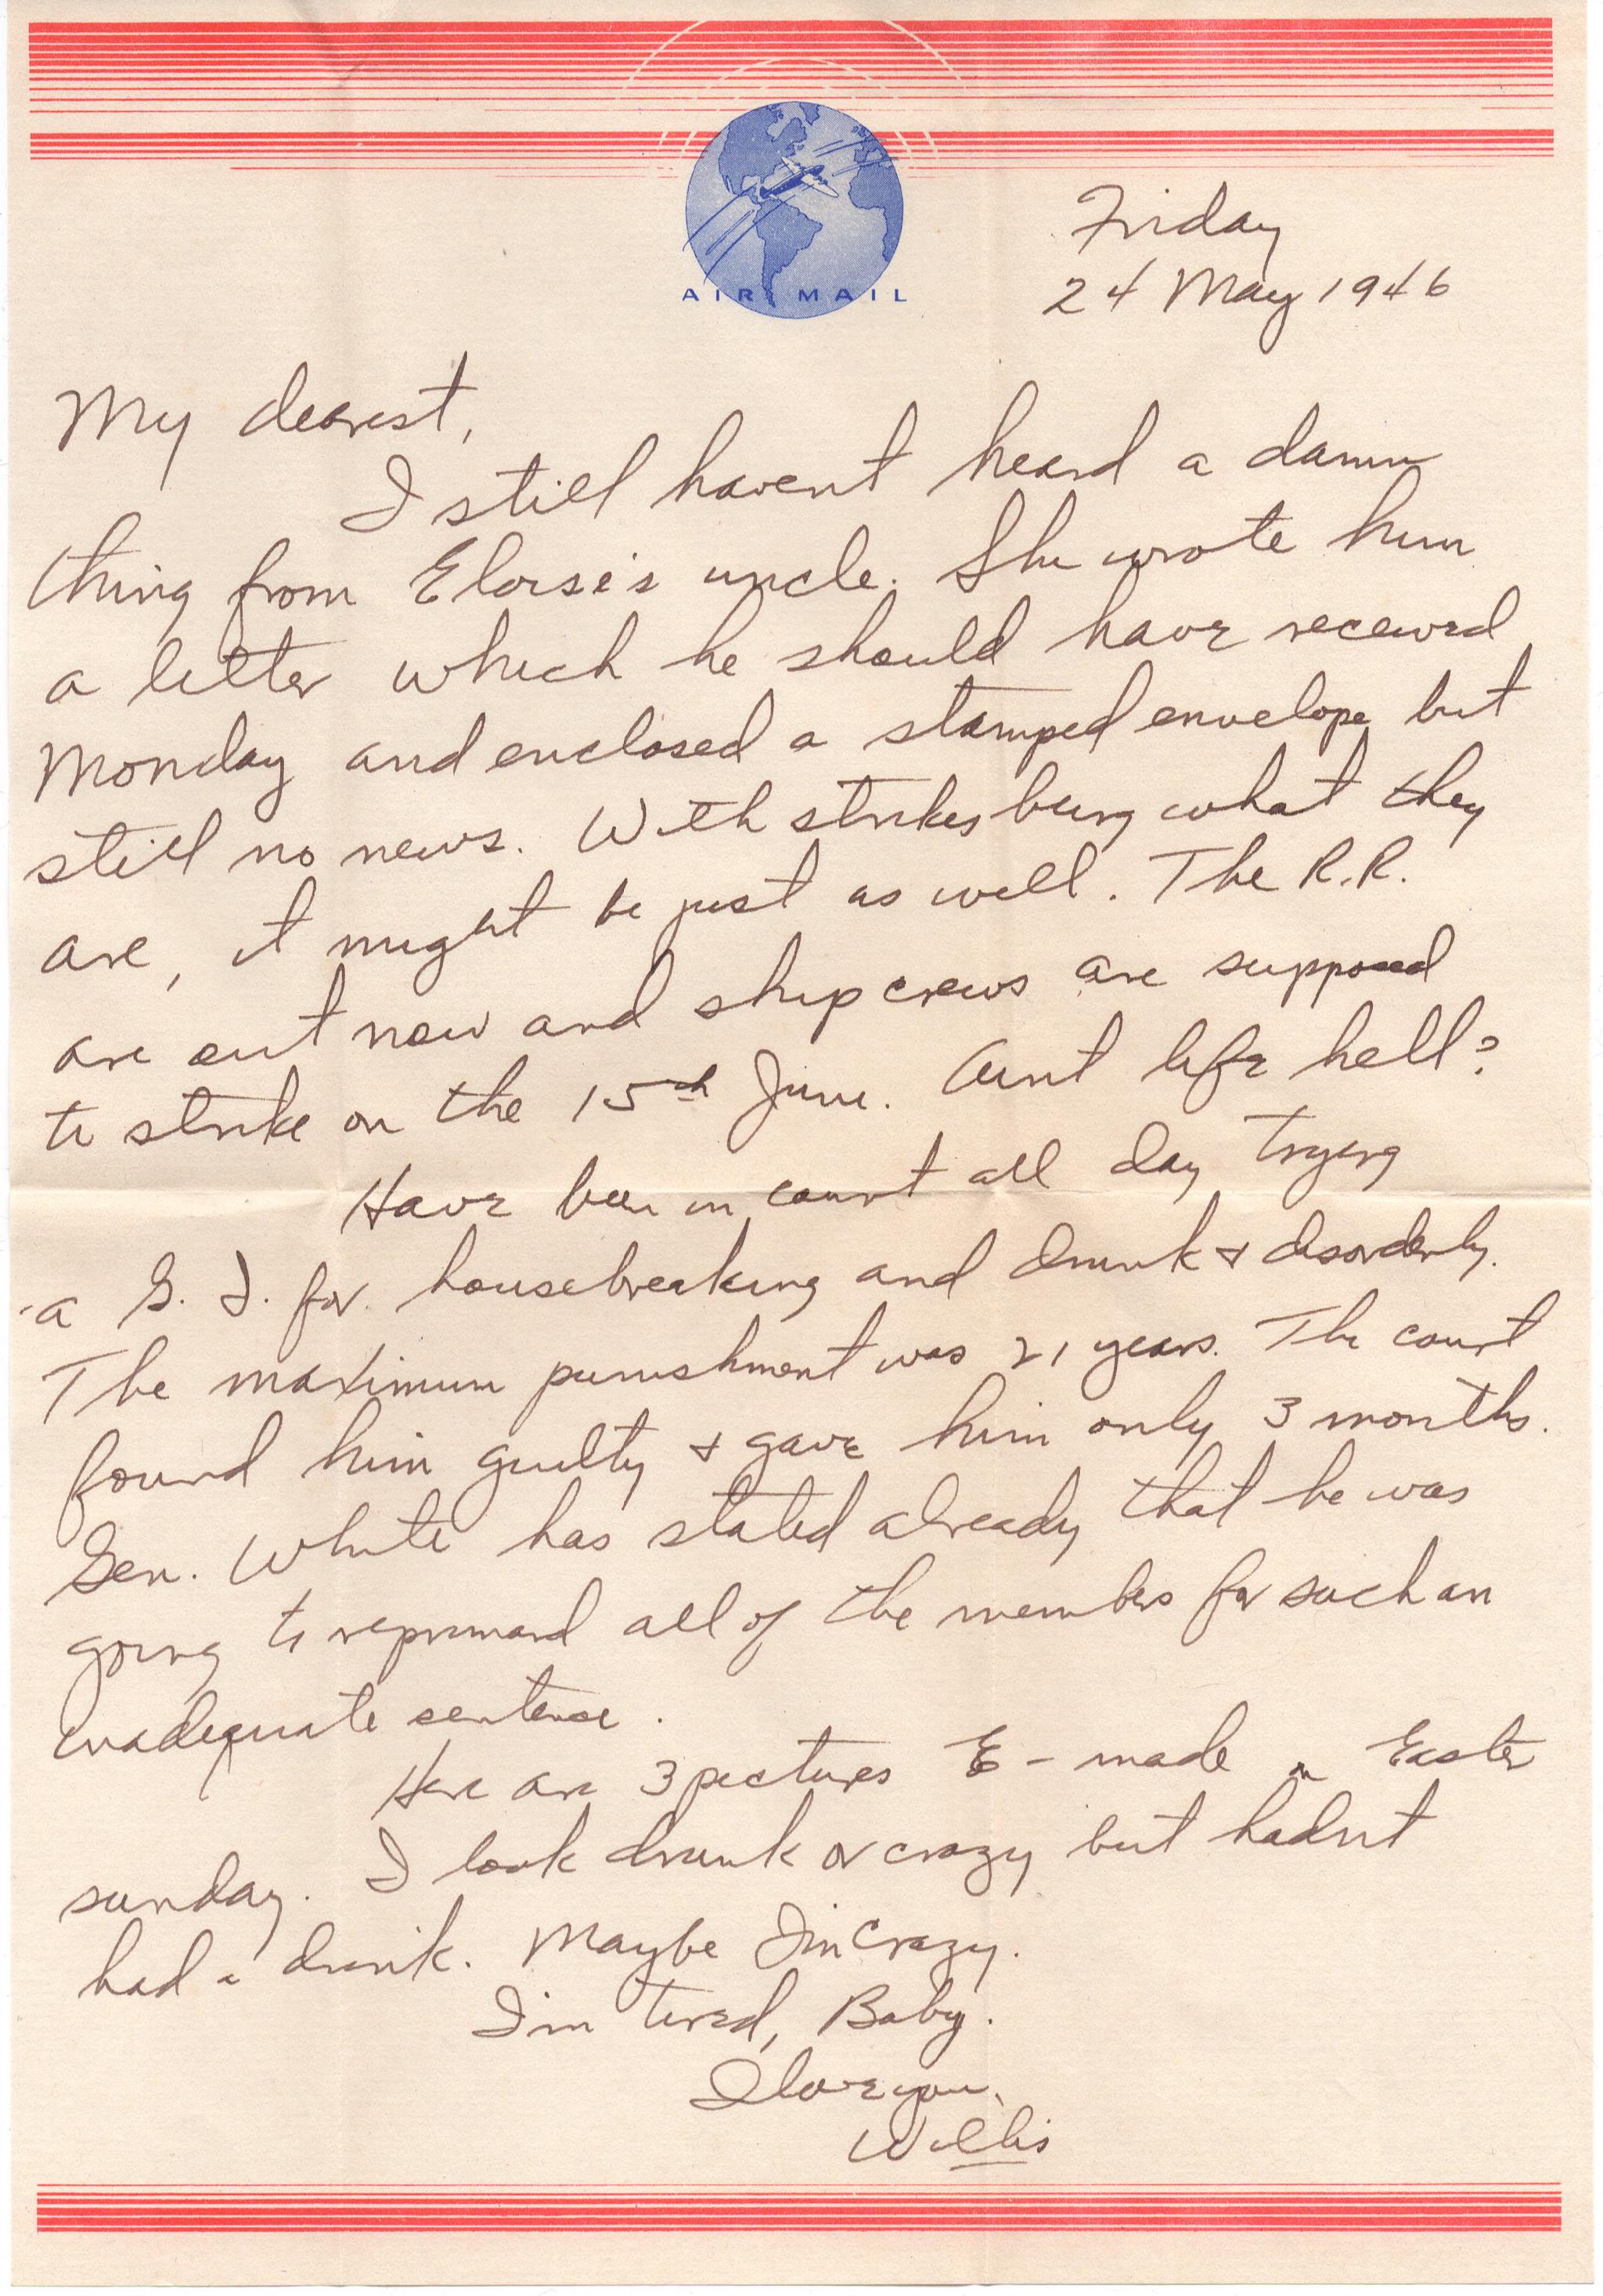 AIR MAIL
Friday
24 May 1946
My dearest,
I still havent heard a damn
thing from Eloise's uncle. She wrote him
a letter which he should have received
Monday and enclosed a stamped envelope but
still no news. With strikes being what they
are, it might be just as well. The R.R.
are out now and ship crews are supposed
to strike on the 15th June. Aint life hell?
Have been in court all day trying
a G. I. for housebreaking and drunk & disorderly.
The maximum punishment was 21 years. The court
found him guilty & gave him only 3 months.
Gen. White has stated already that he was
going to reprimand all of the members for such an
inadequate sentence.
Here are 3 pictures E - made on Easter
sunday. I look drunk or crazy but hadn't
had a drink. Maybe I'm crazy.
I'm tired, Baby.
I love you.
Willis